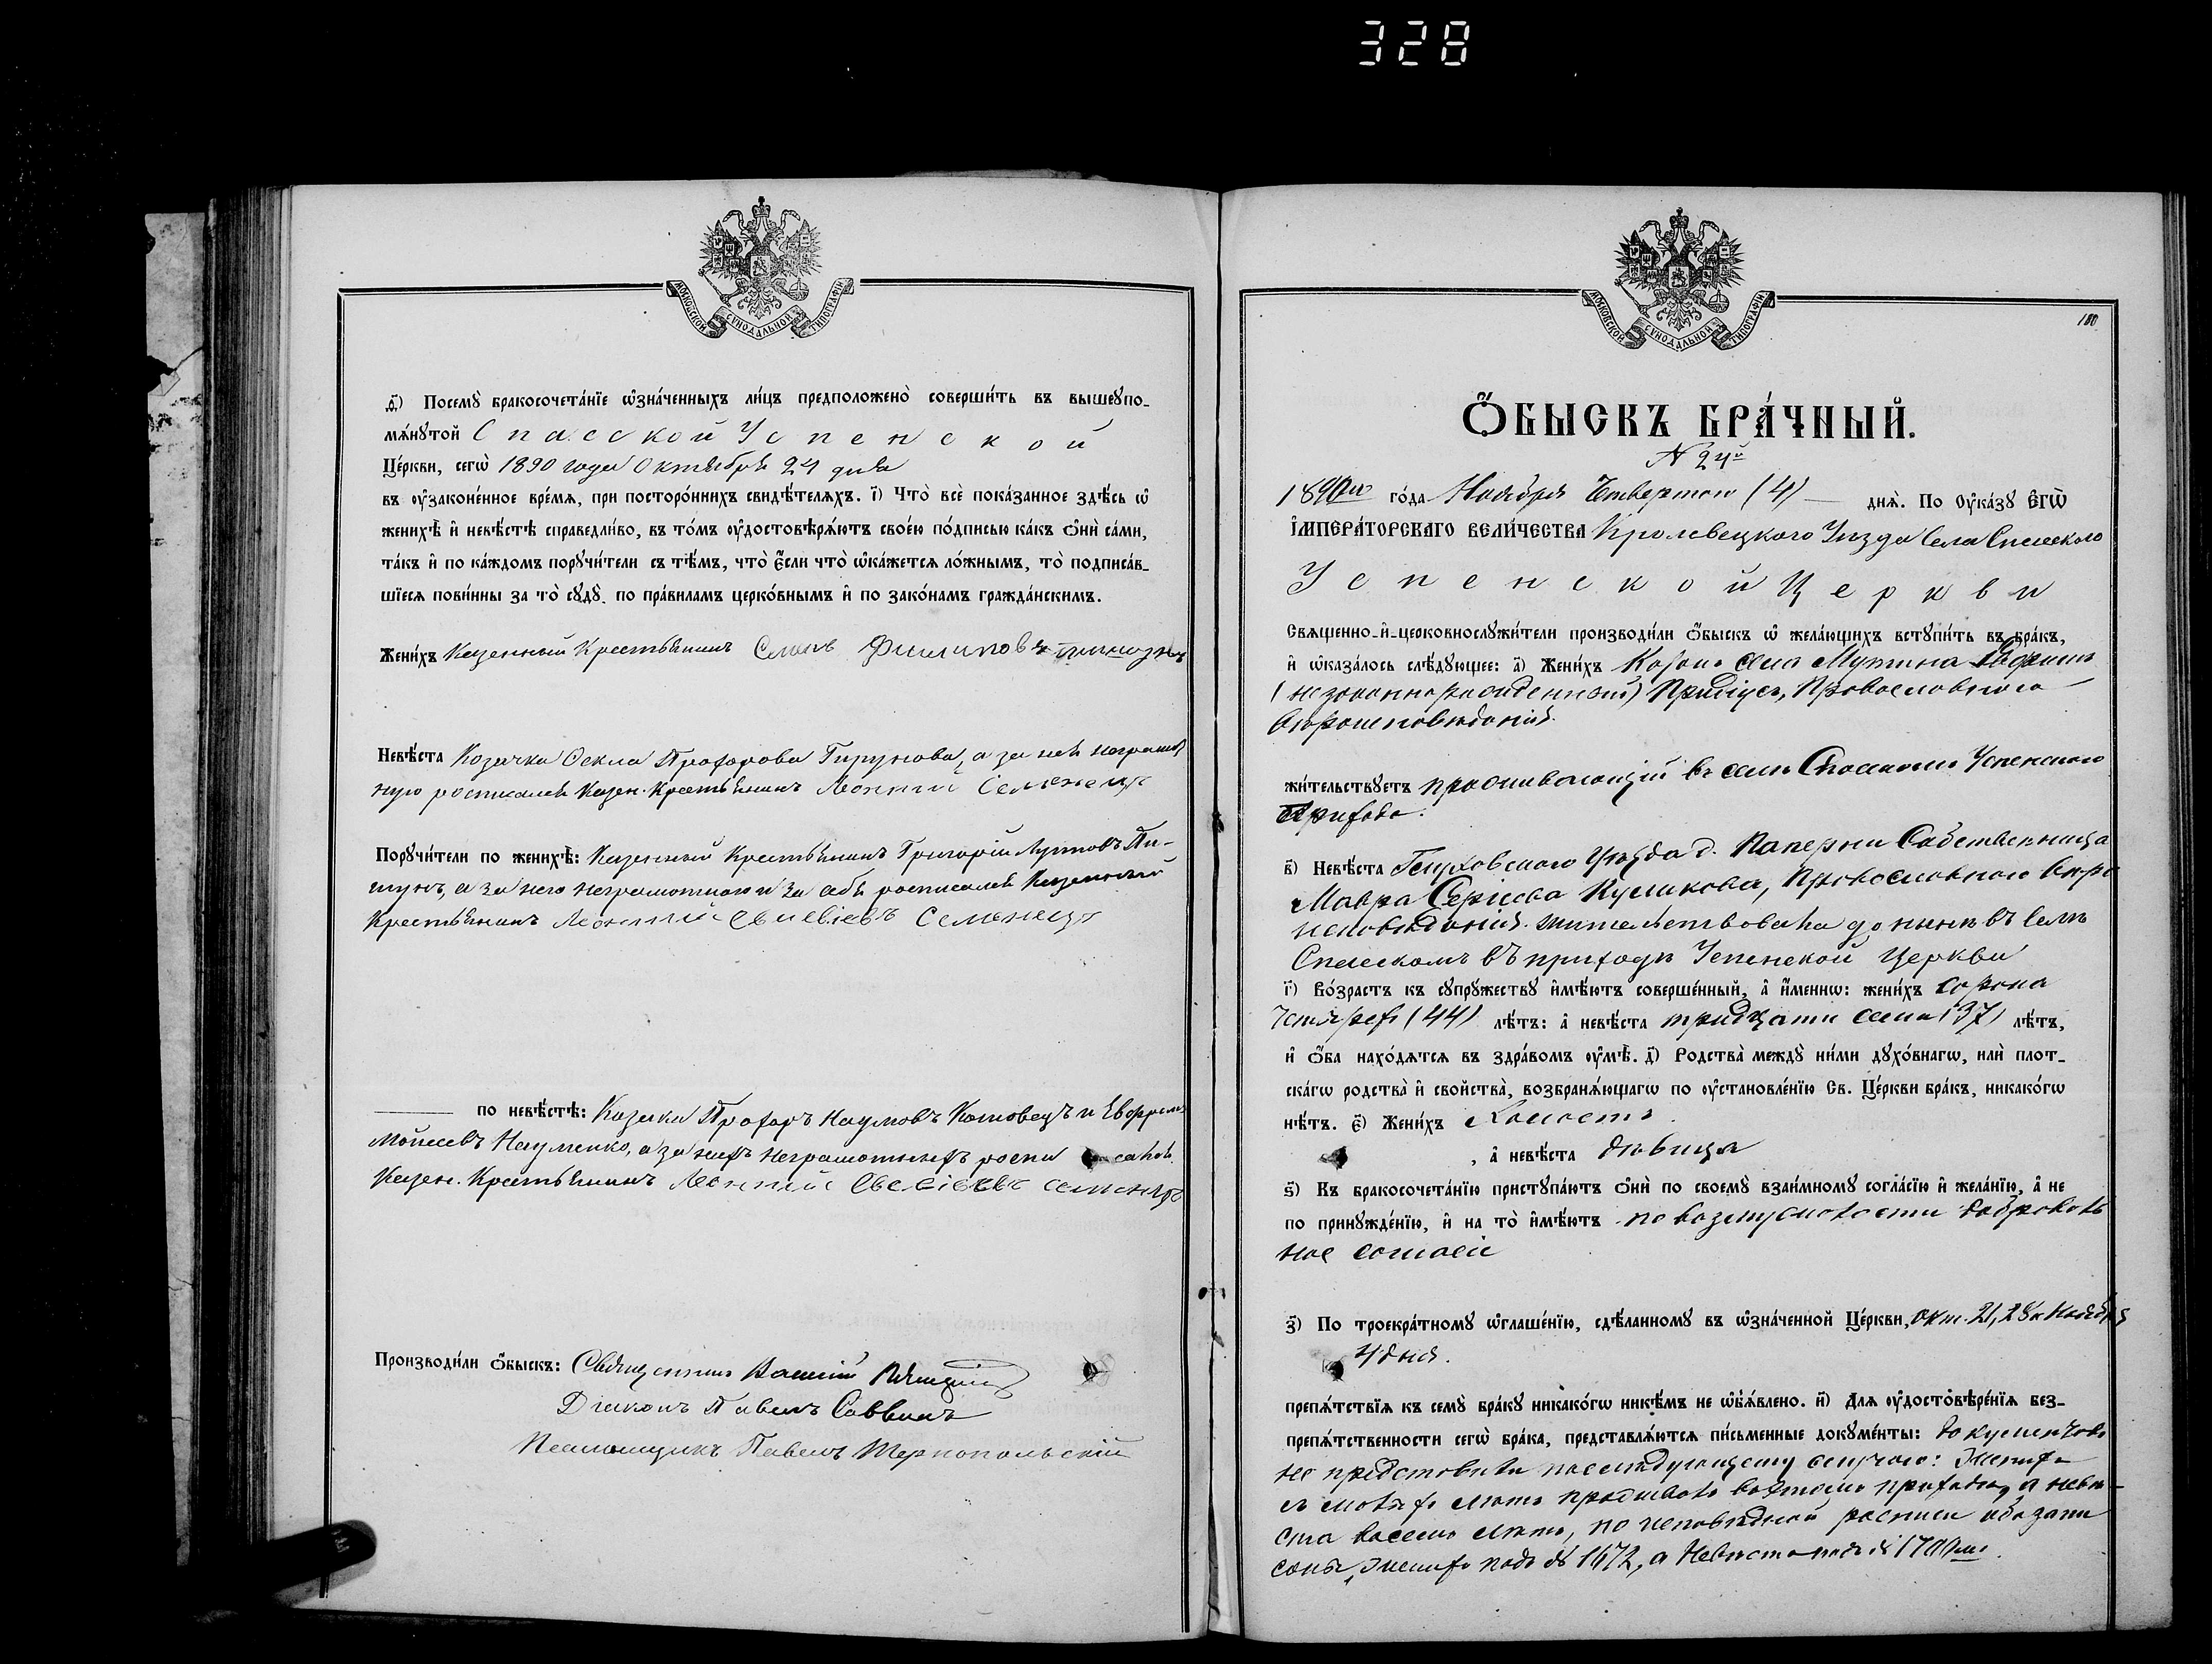 328
МОСКОВСКОЙ СѴНОДАЛЬНОЙ ТИПОГРАФІИ
д҃) Посемꙋ̀ бракосочета́нїе ѡ҆зна́ченныхъ ли́цъ предположено̀ соверши́ть въ вышеꙋпо-
мѧ́нꙋтой Спасской Успенской
Це́ркви, сегѡ̀ 1890 года Октября 24 дня
въ ᲂу҆законе́нное вре́мѧ, при посторо́ннихъ свидѣ́телѧхъ. і҃) Что̀ всѐ пока́занное здѣ́сь ѡ҆
женихѣ̀ и҆ невѣ́стѣ справедли́во, въ то́мъ ᲂу҆достовѣрѧ́ютъ свое́ю по́дписью ка́къ ѻ҆нѝ са́ми,
та́къ и҆ по ка́ждомъ порꙋчи́тели съ тѣ́мъ, что̀ є҆́сли что̀ ѡ҆ка́жетсѧ ло́жнымъ, то̀ подписа́в-
шїесѧ пови́нны за то̀ сꙋдꙋ̀ по пра́виламъ церко́внымъ и҆ по зако́намъ гражда́нскимъ.
Жени́хъ Казенный Крестьянинъ Семенъ Филиповъ
Невѣ́ста Козачка Ѳекла Прохорова Гирунова, а за неё неграмот
ную росписался Казен. Крестьянинъ Леонтій Семенецъ
Порꙋчи́тели по женихѣ̀: Казенный Крестьянинъ Григорій Луповъ Пи-
шунъ, а за него неграмотнаго и за себя росписался Казенный
Крестьянинъ Леонтій Савеліевъ Семенецъ
по невѣ́стѣ: Козаки Прохоръ Наумовъ Котовецъ и Евфрем
Моисеевъ Науменко, а за нихъ неграмотныхъ роспи сался
Казен. Крестьянинъ Леонтій Савеліевъ Семенецъ
Производи́ли ѻ҆́быскъ: Священникъ Василій
Діаконъ Павелъ Саввинъ
Псаломщикъ Павелъ Тернопольскій
МОСКОВСКОЙ СѴНОДАЛЬНОЙ ТИПОГРАФІИ
180
Ѻ҆́БЫСКЪ БРА́ЧНЫЙ.
N 24й
1890го го́да Ноября Четвертаго (4) днѧ̀. По Оу҆ка́зꙋ Є҆ГѠ̀
І҆МПЕРА́ТОРСКАГО ВЕЛИ́ЧЕСТВА Кролевецкого Уѣзда Села Спасскаго
Успенской Церкви
Свѧщенно-и҆-церковнослꙋжи́тели производи́ли ѻ҆́быскъ ѡ҆ жела́ющихъ встꙋпи́ть въ бра́къ,
и҆ ѡ҆каза́лось слѣ́дꙋющее: а҃) Жени́хъ Козакъ села Мутина
(незаконнорожденный) Православнаго
вѣроисповѣданія.
жи́тельствꙋетъ проживающій въ селѣ Спасскомъ Успенскаго
Прихода.
в҃) Невѣ́ста Глуховскаго Уѣзда д. Паперни Собственница
Мавра Сергіева Куликова, Православнаго вѣро
исповѣданія. жительствовала до нынѣ въ селѣ
Спасскомъ въ приходѣ Успенской Церкви
г҃) Во́зрастъ къ сꙋпрꙋ́жествꙋ и҆мѣ́ютъ соверше́нный, а҆ и҆́меннѡ: жени́хъ сорока
четырехъ (44) лѣ́тъ: а҆ невѣ́ста тридцати семи (37) лѣ́тъ,
и҆ ѻ҆́ба нахо́дѧтсѧ въ здра́вомъ ᲂу҆мѣ̀. д҃) Родства̀ междꙋ̀ ни́ми дꙋхо́внагѡ, илѝ плот-
ска́гѡ родства̀ и҆ свойства̀, возбранѧ́ющагѡ по ᲂу҆становле́нїю Св. Це́ркви бра́къ, никако́гѡ
нѣ́тъ. є҃) Жени́хъ Холостъ
, а҆ невѣ́ста дѣвица
ѕ҃) Къ бракосочета́нїю пристꙋпа́ютъ ѻ҆нѝ по своемꙋ̀ взаи́мномꙋ согла́сїю и҆ жела́нїю, а҆ не
по принꙋжде́нїю, и҆ на то̀ и҆мѣ́ютъ по возмужалости добровол
ное согласіе
з҃) По троекра́тномꙋ ѡ҆глаше́нїю, сдѣ́ланномꙋ въ ѡ҆зна́ченной Це́ркви, окт. 21, 28 и Ноября
4 дня.
препѧ́тствїѧ къ семꙋ̀ бра́кꙋ никако́гѡ никѣ́мъ не ѡ҆б̾ѧ́влено. и҃) Длѧ ᲂу҆достовѣре́нїѧ без-
препѧ́тственности сегѡ̀ бра́ка, представлѧ́ютсѧ пи́сьменные докꙋме́нты: документовъ
не представили послѣдующему случаю: Женихъ
съ малыхъ лѣтъ проживалъ въ этомъ приходѣ, а невѣ-
ста восемь лѣтъ, по исповѣдной росписи
женихъ подъ № 1672, а Невѣста подъ №